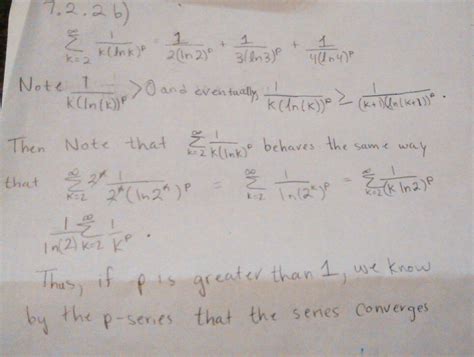 7.2.2 b)
∞Σk=2 1/k(lnk)^p = 1/2(ln2)^p + 1/3(ln3)^p + 1/4(ln4)^p
Note 1/k(ln(k))^p > 0 and eventually, 1/k(ln(k))^p ≥ 1/(k+1)(ln(k+1))^p .
Then Note that ∞Σk=2 1/k(lnk)^p behaves the same way
that ∞Σk=2 2^k 1/2^k(ln2^k)^p = ∞Σk=2 1/ln(2^k)^p = ∞Σk=2 1/(k ln2)^p
1/ln(2) ∞Σk=2 1/k^p .
Thus, if p is greater than 1, we know
by the p-series that the series converges